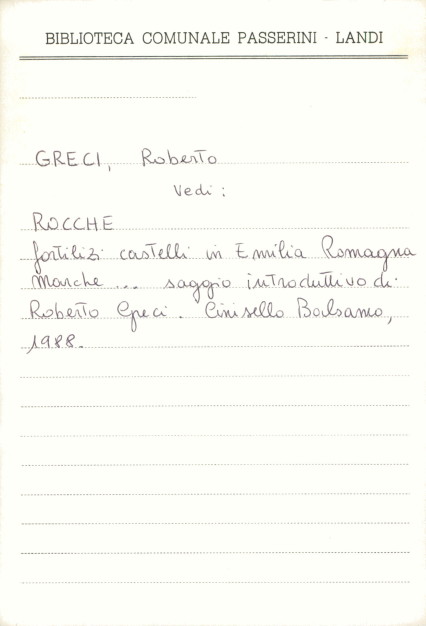 BIBLIOTECA COMUNALE PASSERINI - LANDI
GRECI, Roberto
Vedi :
ROCCHE
fortilizi castelli in Emilia Romagna
Marche ... saggio introduttivo di
Roberto Greci. Cinisello Balsamo,
1988.